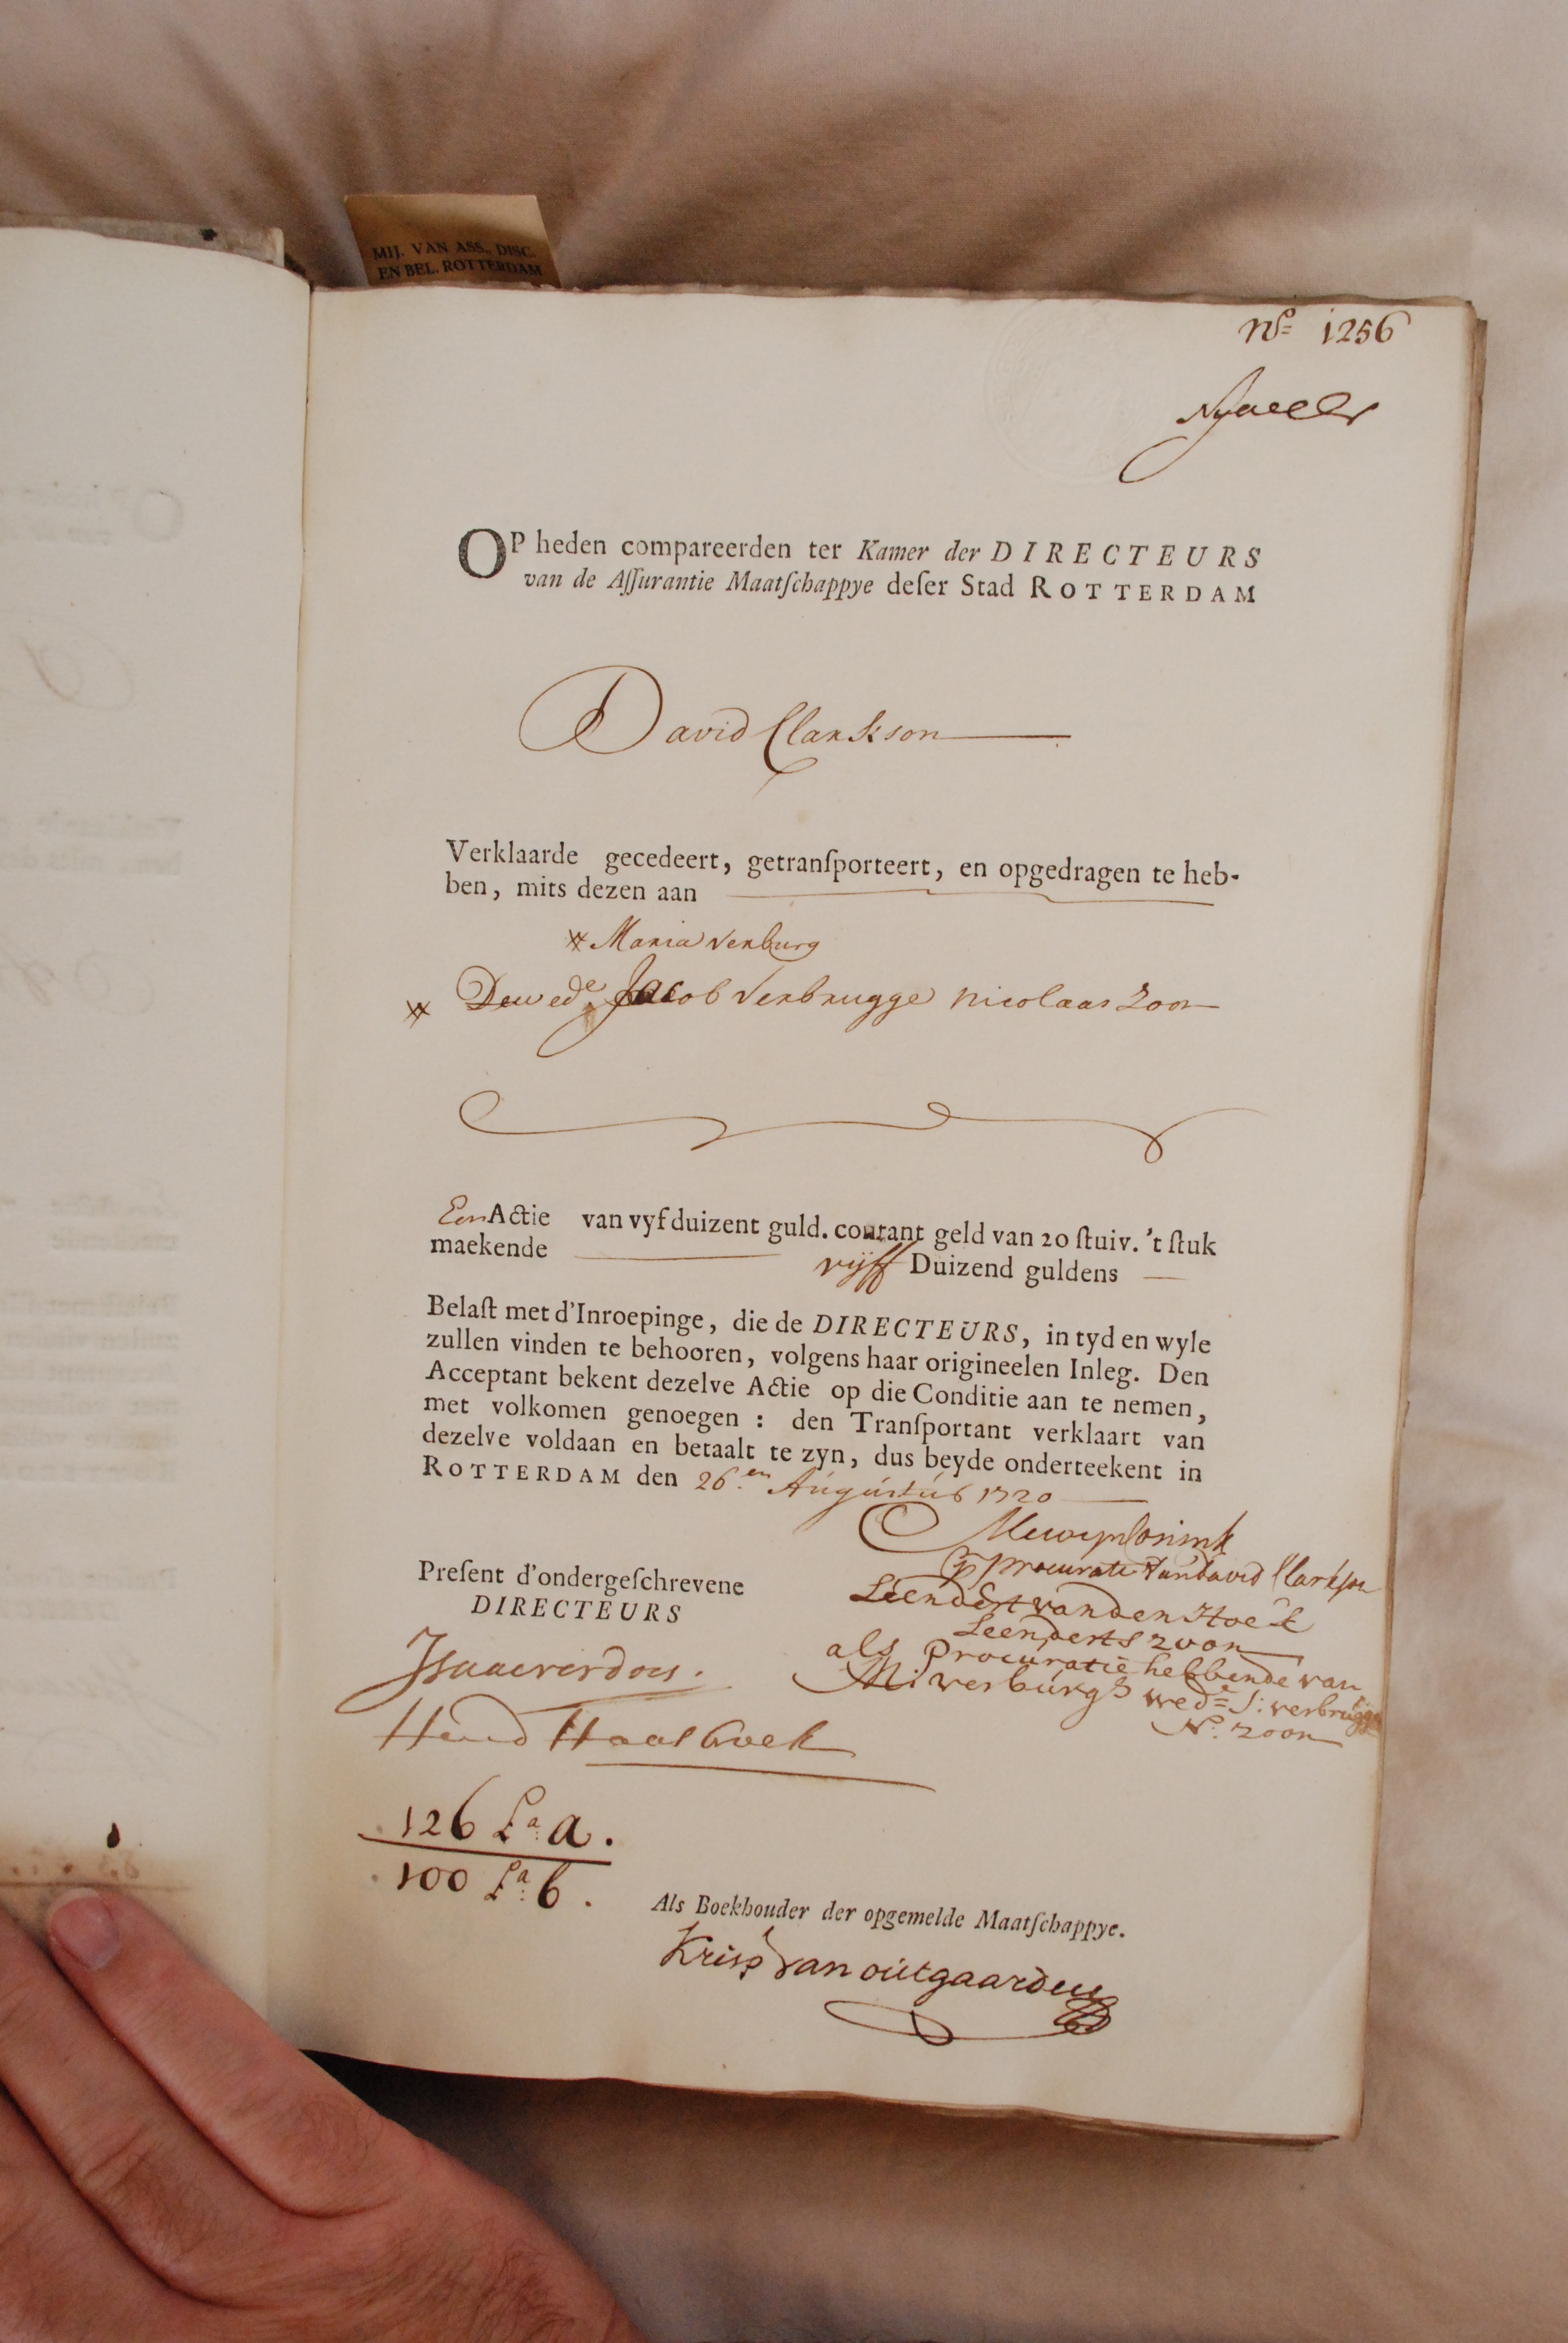 MIJ. VAN ASS., DISC.
EN BEL. ROTTERDAM
No= 1256
OP heden compareerden ter Kamer der DIRECTEURS
van de Aſſurantie Maatſchappye deſer Stad ROTTERDAM
David Clarkson
Verklaarde gecedeert, getranſporteert, en opgedragen te heb-
ben, mits dezen aan
# Maria Verburg
# De wede Jacob Verbrugge Nicolaas Zoon
Een Actie van vyf duizent guld. courant geld van 20 ſtuiv. 't ſtuk
maekende vijff Duizend guldens
Belaſt met d'Inroepinge, die de DIRECTEURS, in tyd en wyle
zullen vinden te behooren, volgens haar origineelen Inleg. Den
Acceptant bekent dezelve Actie op die Conditie aan te nemen,
met volkomen genoegen : den Tranſportant verklaart van
dezelve voldaan en betaalt te zyn, dus beyde onderteekent in
ROTTERDAM den 26.en Augustus 1720
procuratie van David Clarkson
Preſent d'ondergeſchrevene
DIRECTEURS
Leendert vanden Hoek
Leenderts zoon
als procuratie hebbende van
M: verburgh wede= J: verbrugge
N: zoon
126 La a.
100 La: b.
Als Boekhouder der opgemelde Maatſchappye.
Kriss van outgaarden